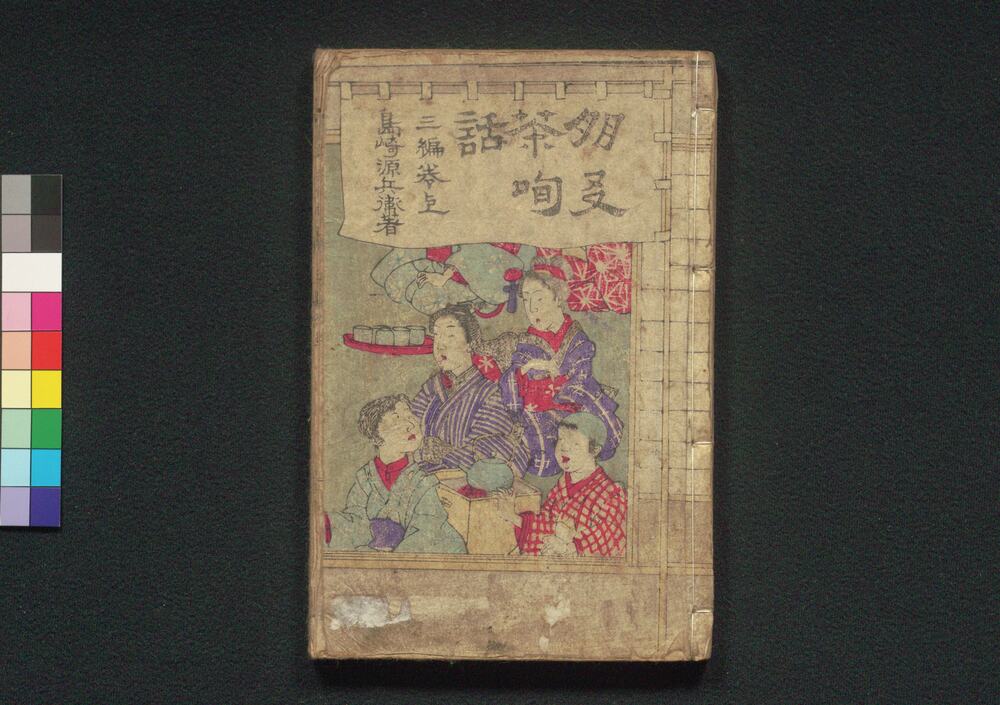 朋友
茶咰
話
三編巻上
島崎源兵衛著